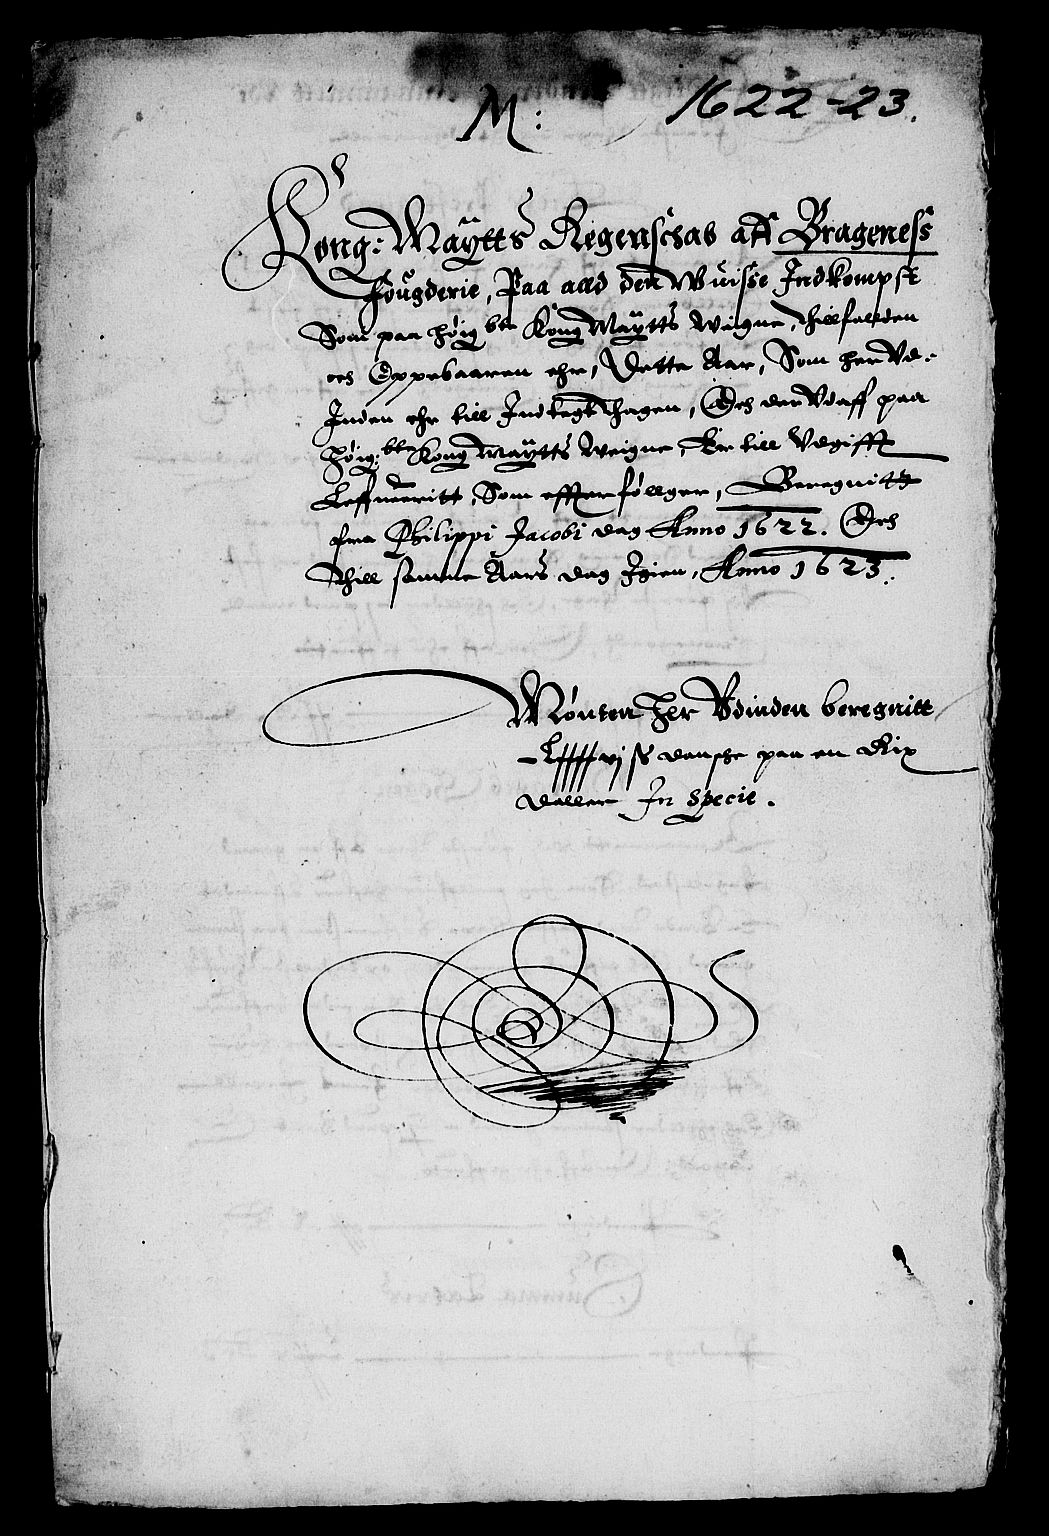 M: 1622-23.
Kong: Maÿtts Regenschab aff Brageness
Fougderie, Paa aald den Wuisse Indkompst
Som paa høig bte Kong Maÿtts Weigne, thillfalden
och Oppebaaren ehr, Dette Aar, Som her Vd-
Inden ehr till Indtegt thagen, Och der Vdaff paa
høig: bte Kong Maÿtts Weigne, Er till Vdgifft
Leffueritt, Som effterfølger, Beregnitt
fra Philippi Jacobi dag Anno 1622. Och
thill samme Aars dag Igien, Anno 1623.
Mønten her Vdinden beregnitt
vj ß danshe paa en Rix
daller In specie.